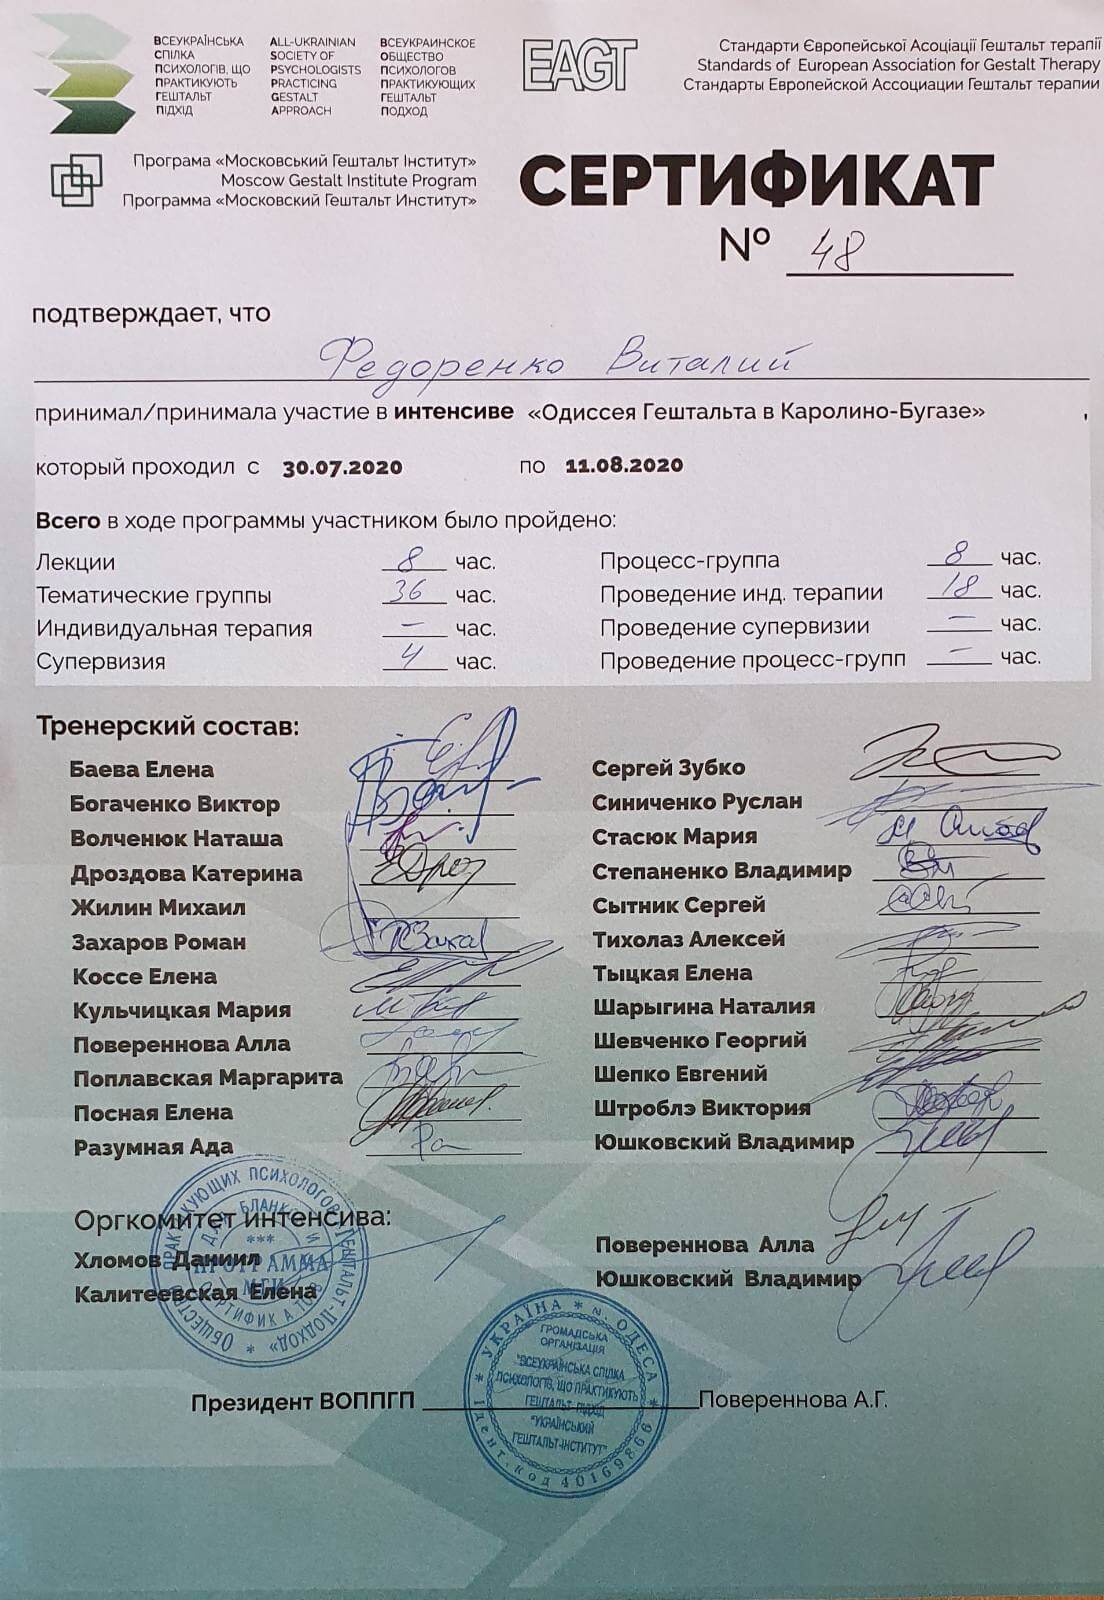 ВСЕУКРАЇНСЬКА
СПІЛКА
ПСИХОЛОГІВ, ЩО
ПРАКТИКУЮТЬ
ГЕШТАЛЬТ
ПІДХІД
ALL-UKRAINIAN
SOCIETY OF
PSYCHOLOGISTS
PRACTICING
GESTALT
APPROACH
ВСЕУКРАИНСКОЕ
ОБЩЕСТВО
ПСИХОЛОГОВ
ПРАКТИКУЮЩИХ
ГЕШТАЛЬТ
ПОДХОД
EAGT
Стандарти Європейської Асоціації Гештальт терапії
Standards of European Association for Gestalt Therapy
Стандарты Европейской Ассоциации Гештальт терапии
Програма «Московський Гештальт Інститут»
Moscow Gestalt Institute Program
Программа «Московский Гештальт Институт»
СЕРТИФИКАТ
№ 48
подтверждает, что
Федоренко Виталий
принимал/принимала участие в интенсиве «Одиссея Гештальта в Каролино-Бугазе» ,
который проходил с 30.07.2020 по 11.08.2020
Всего в ходе программы участником было пройдено:
Лекции 8 час. Процесс-группа 8 час.
Тематические группы 36 час. Проведение инд. терапии 18 час.
Индивидуальная терапия – час. Проведение супервизии – час.
Супервизия 4 час. Проведение процесс-групп – час.
Тренерский состав:
Баева Елена Сергей Зубко
Богаченко Виктор Синиченко Руслан
Волченюк Наташа Стасюк Мария
Дроздова Катерина Степаненко Владимир
Жилин Михаил Сытник Сергей
Захаров Роман Тихолаз Алексей
Коссе Елена Тыцкая Елена
Кульчицкая Мария Шарыгина Наталия
Повереннова Алла Шевченко Георгий
Поплавская Маргарита Шепко Евгений
Посная Елена Штроблэ Виктория
Разумная Ада Юшковский Владимир
Оргкомитет интенсива:
Хломов Даниил Повереннова Алла
Калитеевская Елена Юшковский Владимир
ОБЩЕСТВО ПРАКТИКУЮЩИХ ПСИХОЛОГОВ «ГЕШТАЛЬТ-ПОДХОД»
ДЛЯ БЛАНКОВ И
***
ПРОГРАММА
МГИ
СЕРТИФИКАТОВ
УКРАЇНА * м. ОДЕСА
ГРОМАДСЬКА
ОРГАНІЗАЦІЯ
"ВСЕУКРАЇНСЬКА СПІЛКА
ПСИХОЛОГІВ, ЩО ПРАКТИКУЮТЬ
ГЕШТАЛЬТ-ПІДХІД
"УКРАЇНСЬКИЙ
ГЕШТАЛЬТ-ІНСТИТУТ"
Ідент. код 40169866
Президент ВОППГП Повереннова А.Г.